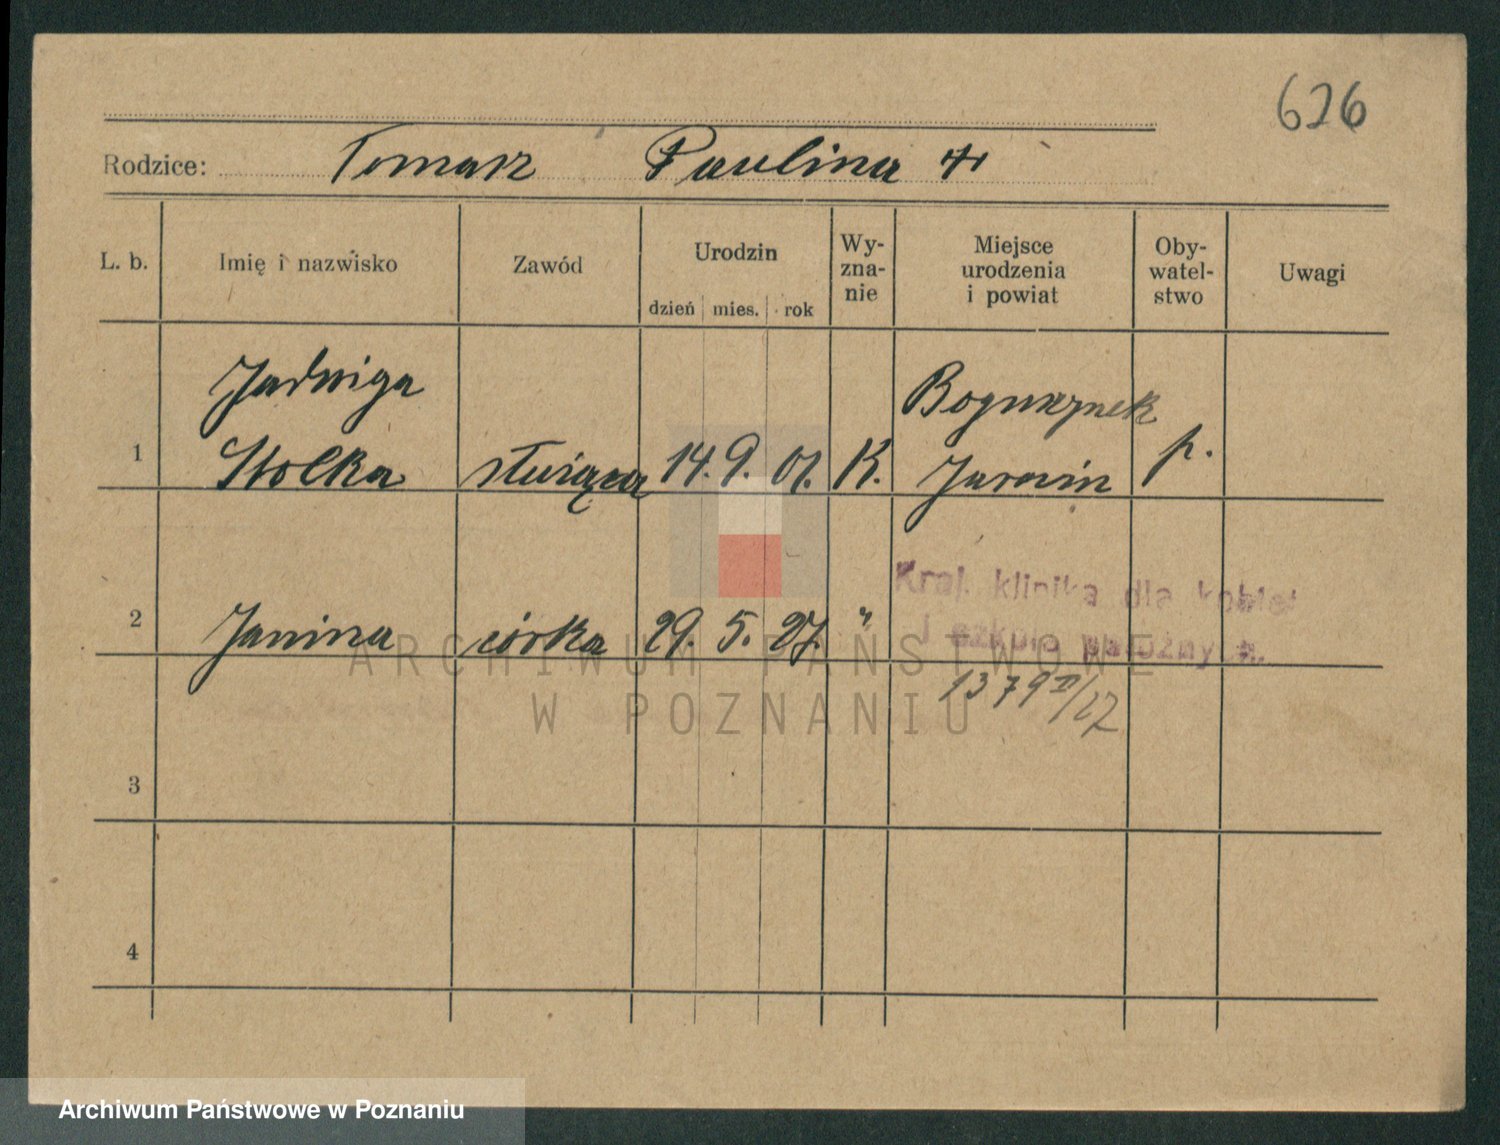 626
Rodzice: Tomasz Paulina
L. b. Imię i nazwisko Zawód Urodzin Wy-zna-nie Miejsce urodzenia i powiat Oby-watel-stwo Uwagi
dzień mies. rok
Jadwiga Boguszynek
1 Stolka służąca 14. 9. 01. K. Jarocin p.
Kraj. klinika dla kobiet
2 Janina córka 29. 5. 27. " i szkoła położnych.
1379 II/27
3
4
ARCHIWUM PAŃSTWOWE
W POZNANIU
Archiwum Państwowe w Poznaniu